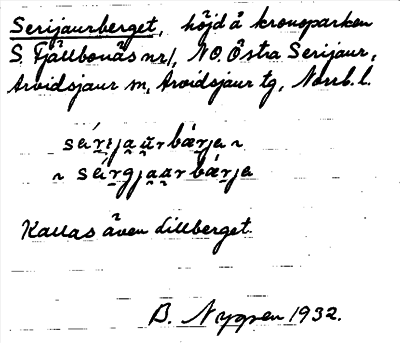 Serijaurberget, höjd å kronoparken
S. Fjällbonäs nr 1, NO. Östra Serijaur,
Arvidsjaur sn, Arvidsjaur tg, Norrb. l.
Kallas även Lillberget.
B. Nygren 1932.